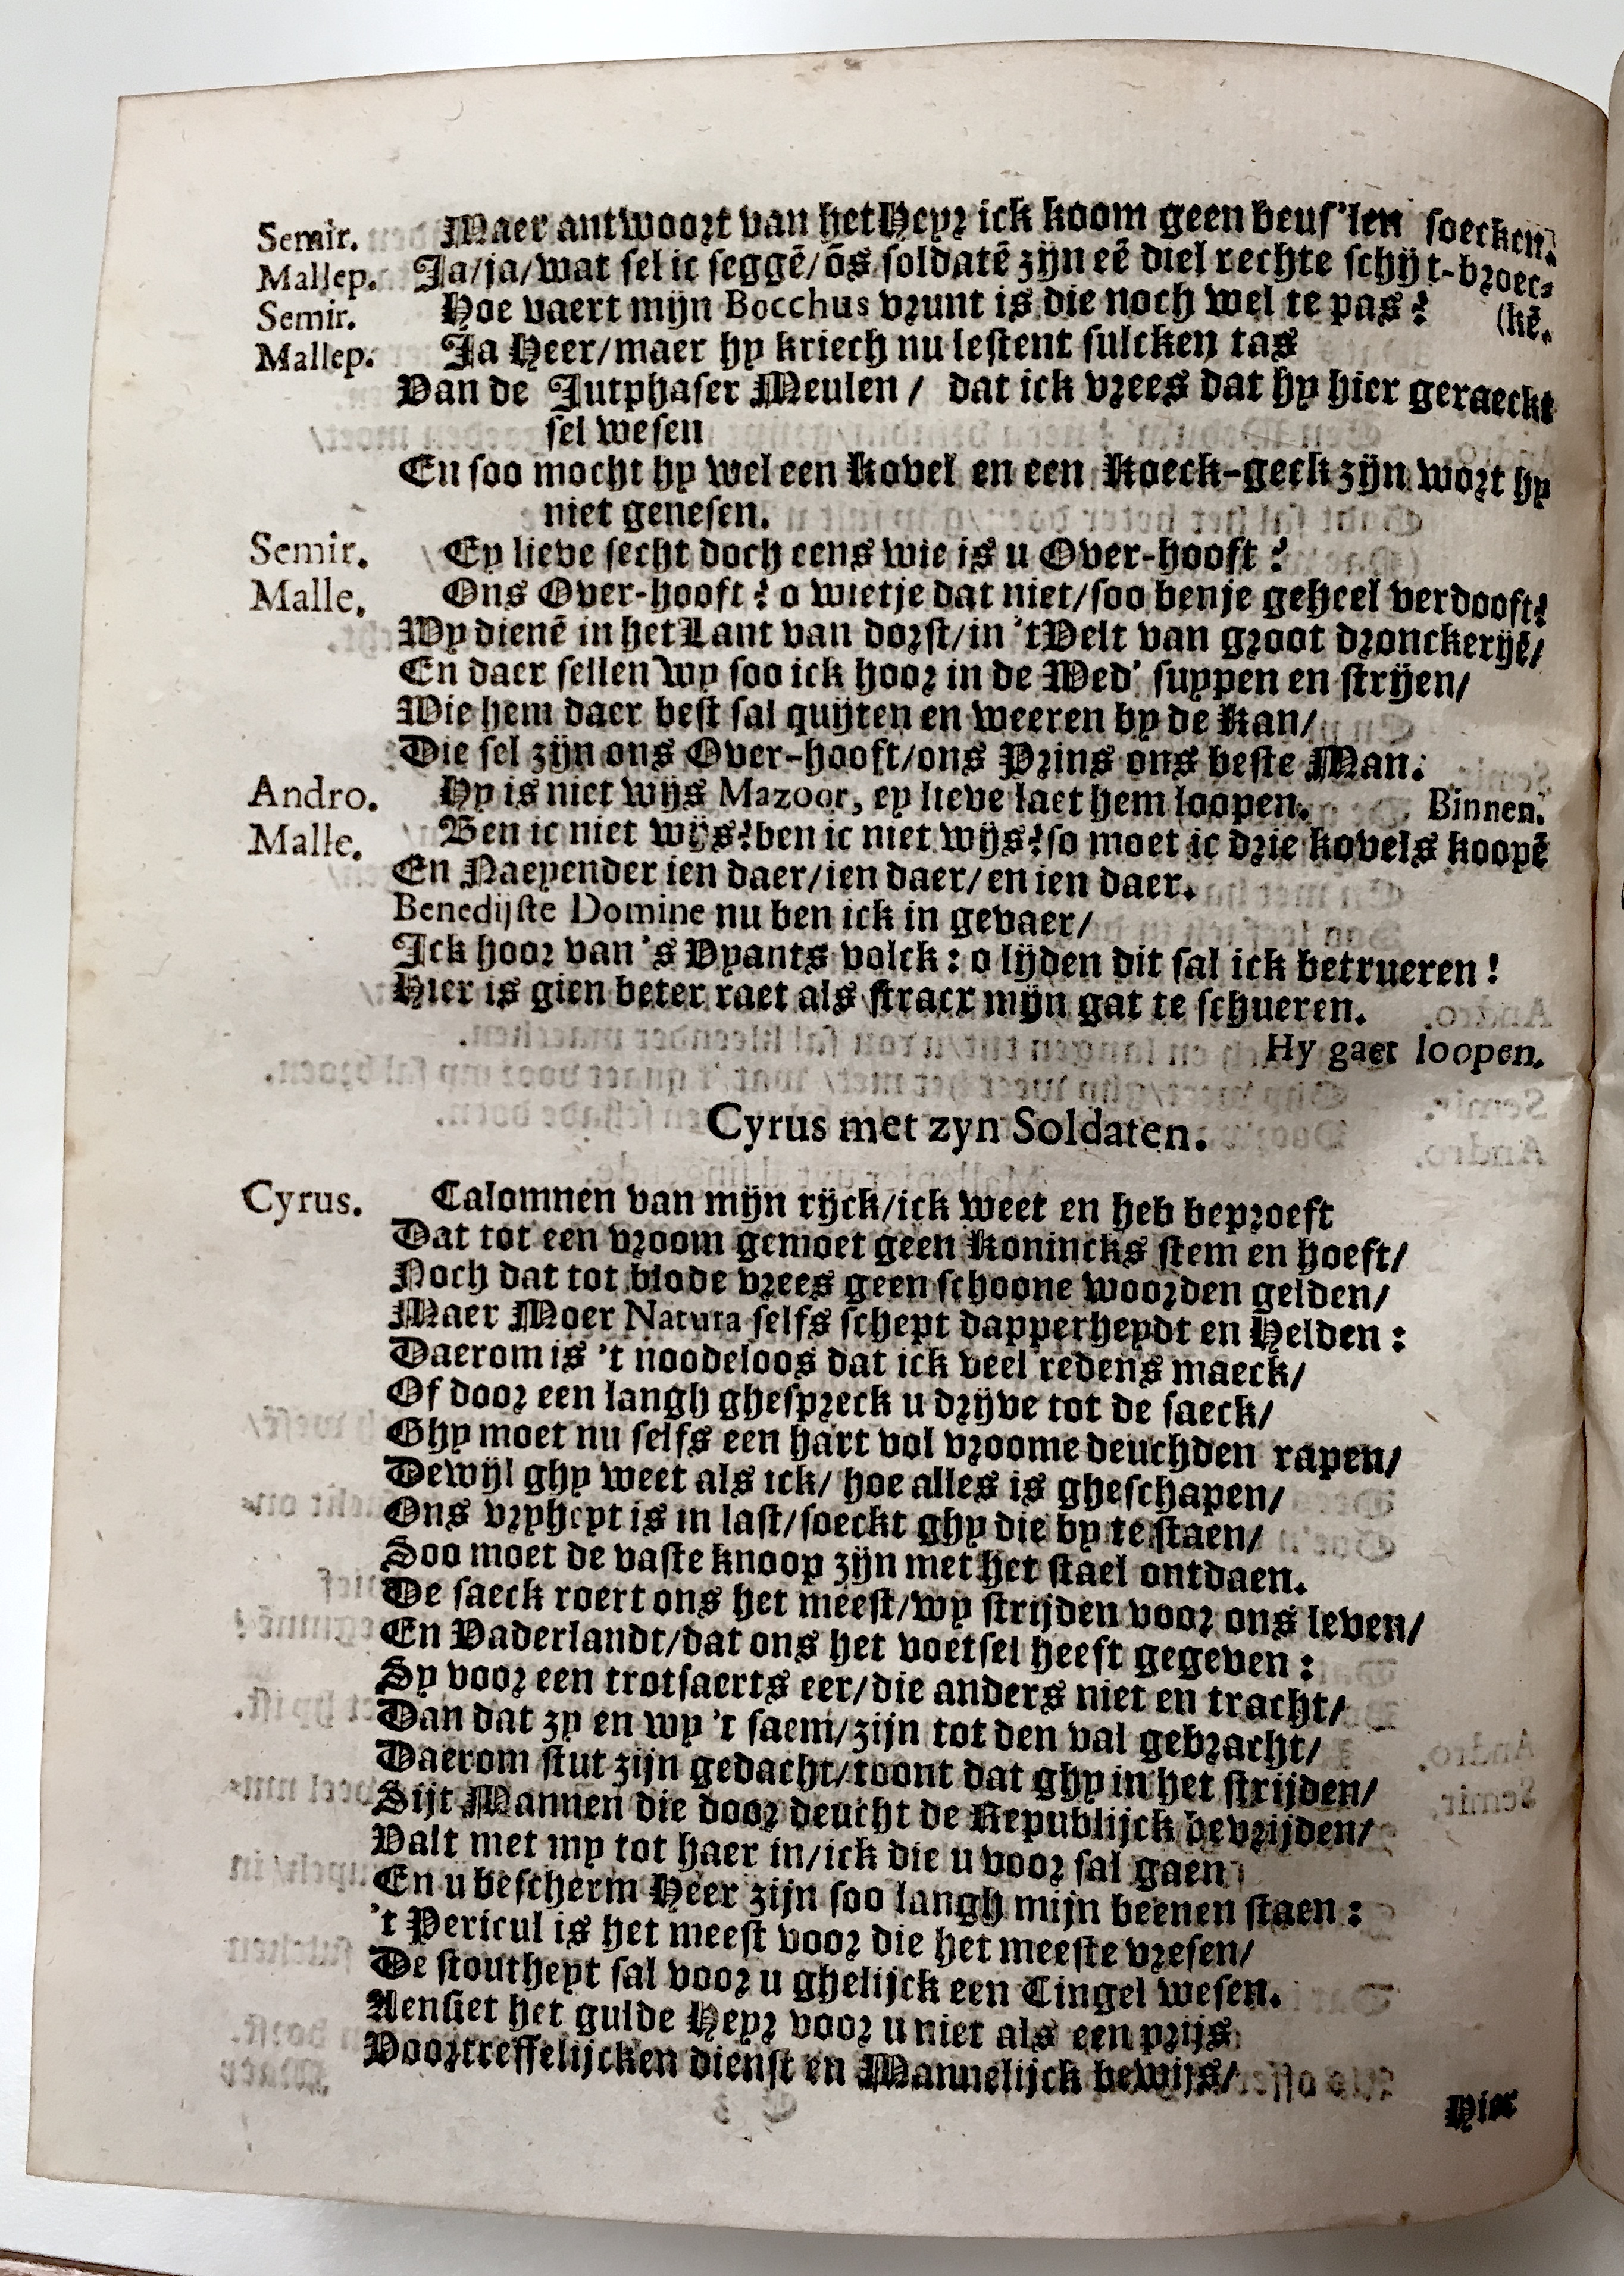 Semir. Maer antwoort van het Heyr ick koom geen beus'len soecken.
Mallep. Ja/ja/wat sel ic seggē/ōs soldatē zijn eē diel rechte schijt-broec-
Semir. Hoe vaert mijn Bocchus vrunt is die noch wel te pas? (kē.
Mallep. Ja Heer/maer hy kriech nu lestent sulcken tas
Van de Jutphaser Meulen / dat ick vrees dat hy hier geraeckt
sel wesen
En soo mocht hy wel een Kovel en een Koeck-geck zijn wort hy
niet genesen.
Semir. Ey lieve secht doch eens wie is u Over-hooft?
Malle. Ons Over-hooft? o wietje dat niet/soo benje geheel verdooft?
Wy dienē in het Lant van dorst/in 't Velt van groot dronckerijē/
En daer sellen wy soo ick hoor in de Wed' suypen en strijen/
Wie hem daer best sal quijten en weeren by de Kan/
Die sel zijn ons Over-hooft/ons Prins ons beste Man.
Andro. Hy is niet wijs Mazoor, ey lieve laet hem loopen. Binnen.
Malle. Ben ic niet wijs?ben ic niet wijs?so moet ic drie kovels koopē
En Naeyender ien daer/ien daer/en ien daer.
Benedijste Domine nu ben ick in gevaer/
Ick hoor van 's Vyants volck: o lijden dit sal ick betrueren!
Hier is gien beter raet als stracx mijn gat te schueren.
Hy gaet loopen.
Cyrus met zyn Soldaten.
Cyrus. Calomnen van mijn rijck/ick weet en heb beproeft
Dat tot een vroom gemoet geen Konincks stem en hoeft/
Noch dat tot blode vrees geen schoone woorden gelden/
Maer Moer Natura selfs schept dapperheydt en Helden:
Daerom is 't noodeloos dat ick veel redens maeck/
Of door een langh ghespreck u drijve tot de saeck/
Ghy moet nu selfs een hart vol vroome deuchden rapen/
Dewijl ghy weet als ick/ hoe alles is gheschapen/
Ons vryheyt is in last/soeckt ghy die by te staen/
Soo moet de vaste knoop zijn met het stael ontdaen.
De saeck roert ons het meest/wy strijden voor ons leven/
En Vaderlandt/dat ons het voetsel heeft gegeven:
Sy voor een trotsaerts eer/die anders niet en tracht/
Dan dat zy en wy 't saem/zijn tot den val gebracht/
Daerom stut zijn gedacht/toont dat ghy in het strijden/
Sijt Mannen die door deucht de Republijck bevrijden/
Valt met my tot haer in/ick die u voor sal gaen
En u bescherm Heer zijn soo langh mijn beenen staen:
't Pericul is het meest voor die het meeste vresen/
De stoutheyt sal voor u ghelijck een Cingel wesen.
Aensiet het gulde Heyr voor u niet als een prijs
Voortreffelijcken dienst en Mannelijck bewijs/
Hier